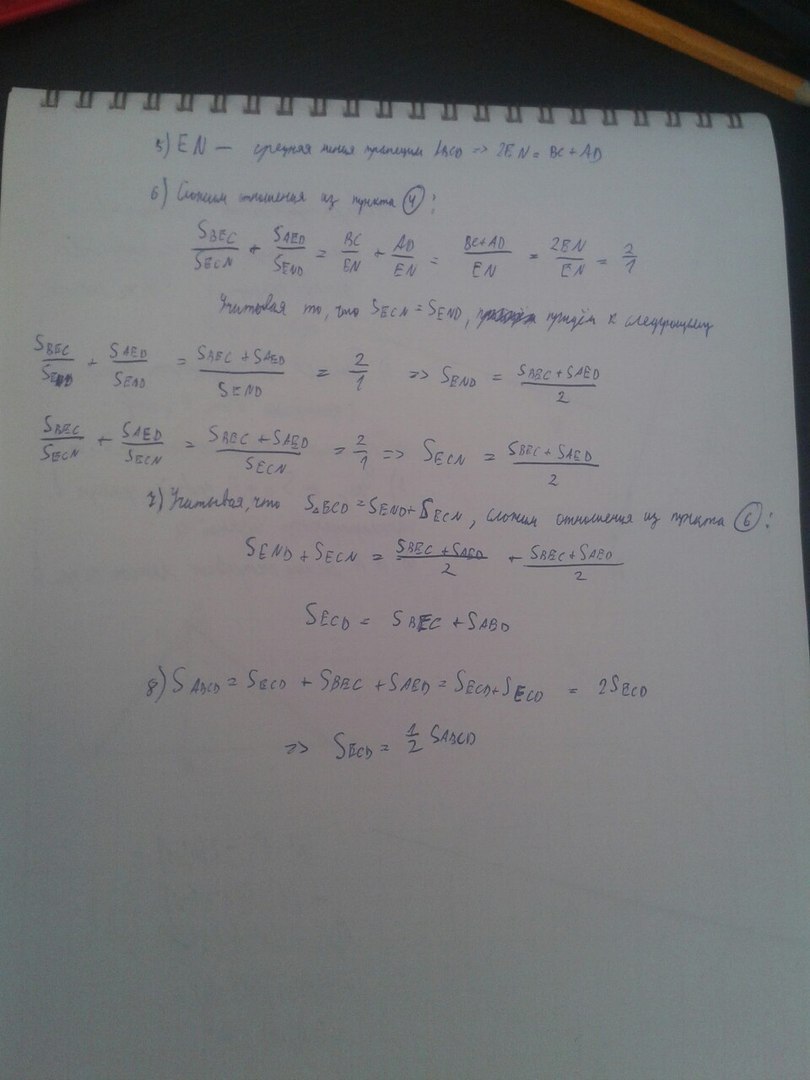 5) EN — средняя линия трапеции ABCD => 2EN = BC + AD
6) Сложим отношения из пункта (4):
S_BEC/S_ECN + S_AED/S_END = BC/EN + AD/EN = BC+AD/EN = 2EN/EN = 2/1
Учитывая то, что S_ECN = S_END, придём к следующему
S_BEC/S_END + S_AED/S_END = S_BEC + S_AED/S_END = 2/1 => S_END = S_BEC + S_AED/2
S_BEC/S_ECN + S_AED/S_ECN = S_BEC + S_AED/S_ECN = 2/1 => S_ECN = S_BEC + S_AED/2
7) Учитывая, что S_△ECD = S_END + S_ECN, сложим отношения из пункта (6):
S_END + S_ECN = S_BEC + S_AED/2 + S_BEC + S_AED/2
S_ECD = S_BEC + S_ABD
8) S_ABCD = S_ECD + S_BEC + S_AED = S_ECD + S_ECD = 2S_ECD
=> S_ECD = 1/2 S_ABCD